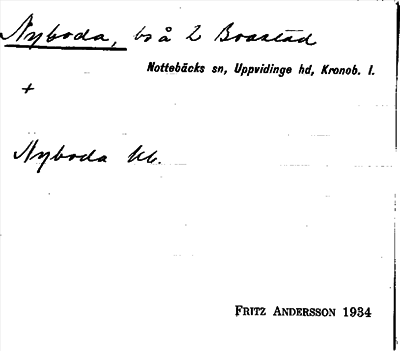 Nyboda, bs å 2 Brastad
Nottebäcks sn, Uppvidinge hd, Kronob. l.
+
Nyboda kk.
FRITZ ANDERSSON 1934